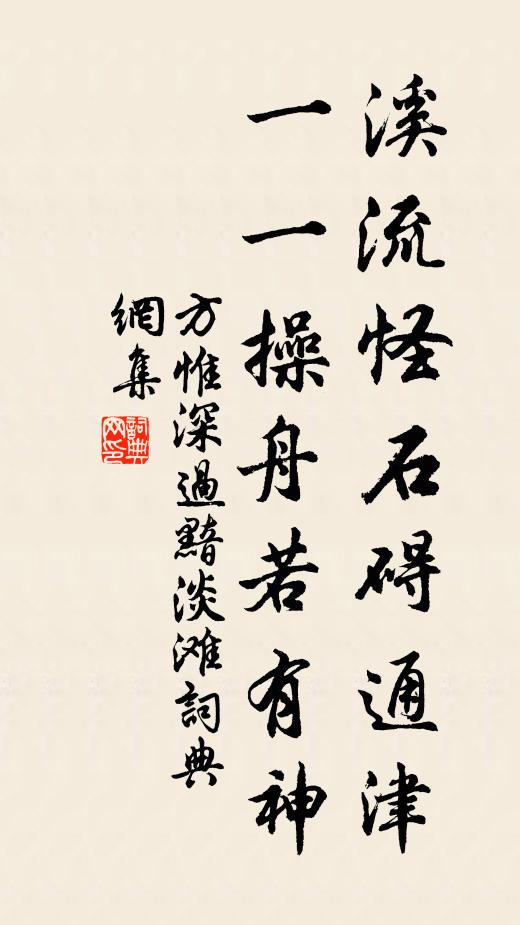 溪流怪石碍通津
一一操舟若有神
方惟深過黯淡滩詞典
網集
詞典
网印